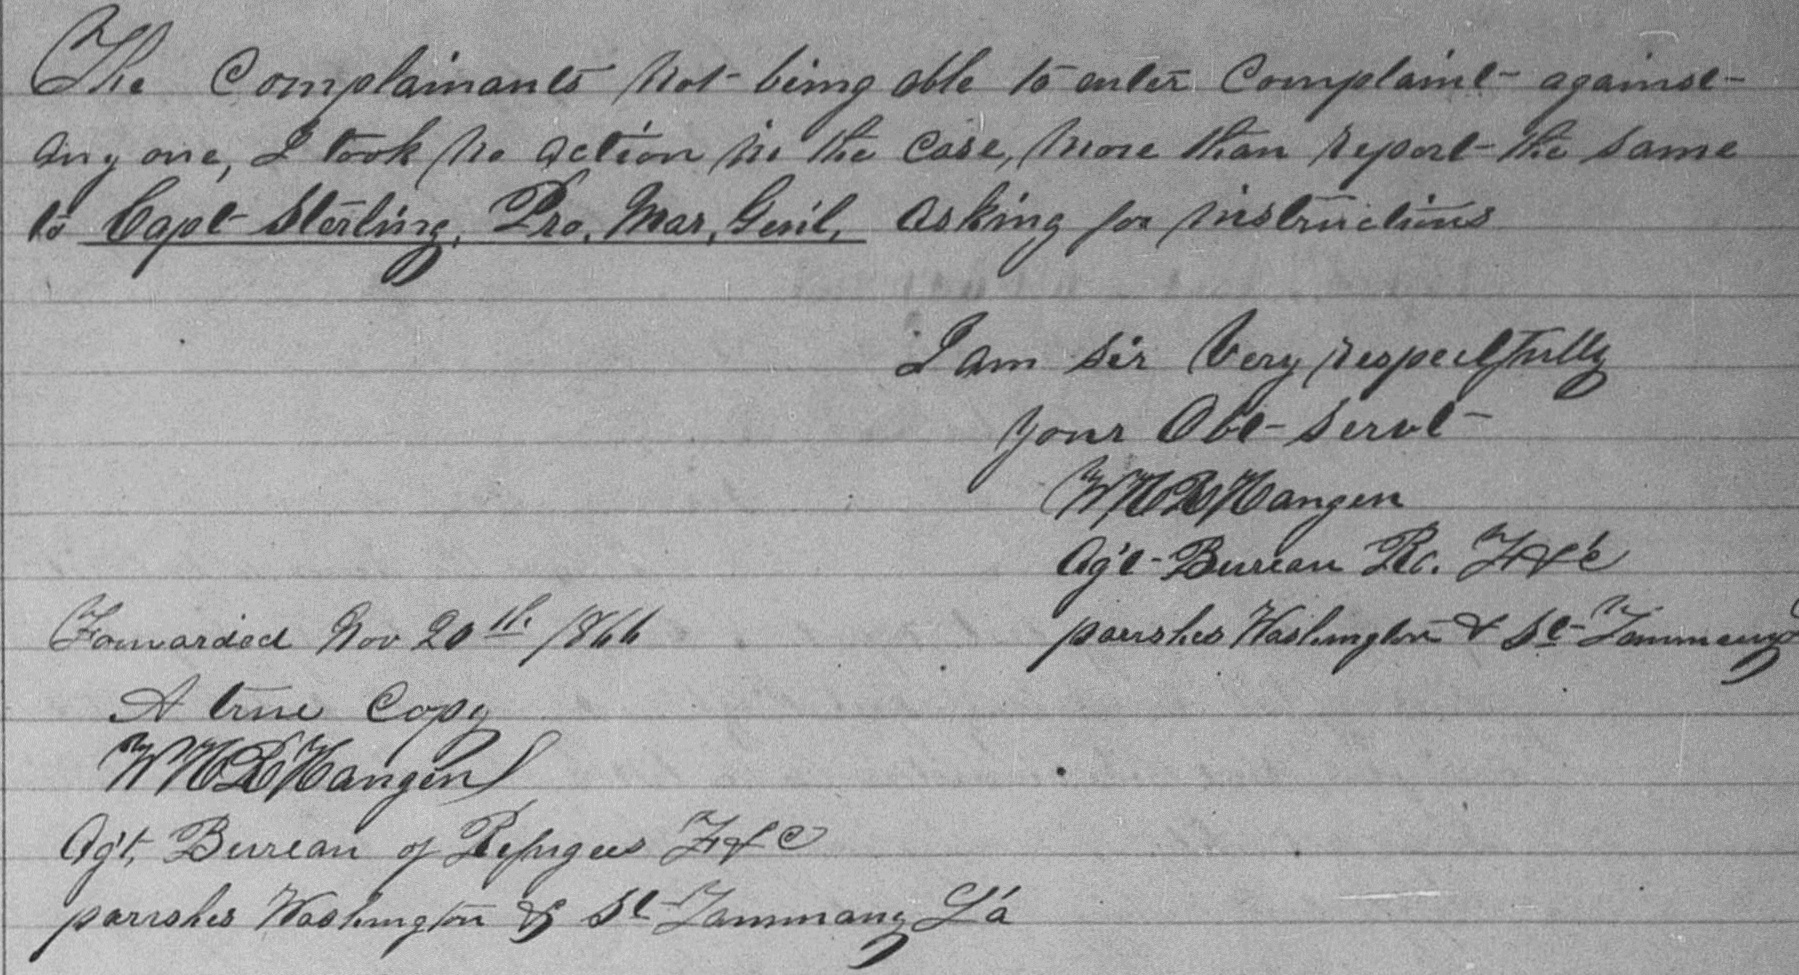 The Complainants not being able to enter Complaint against
any one, I took no action in the case, more than report the same
to Capt Sterling, Pro. Mar, Genl, asking for instructions
I am sir Very respectfully
your Obt Servt
W H R Hangen
Ag't Bureau R. F & c
parishes Washington & St Tammany
Forwarded Nov 20th /866
A true Copy
W H R Hangen
Ag't, Bureau of Refugees F & C
parishes Washington & St Tammany La